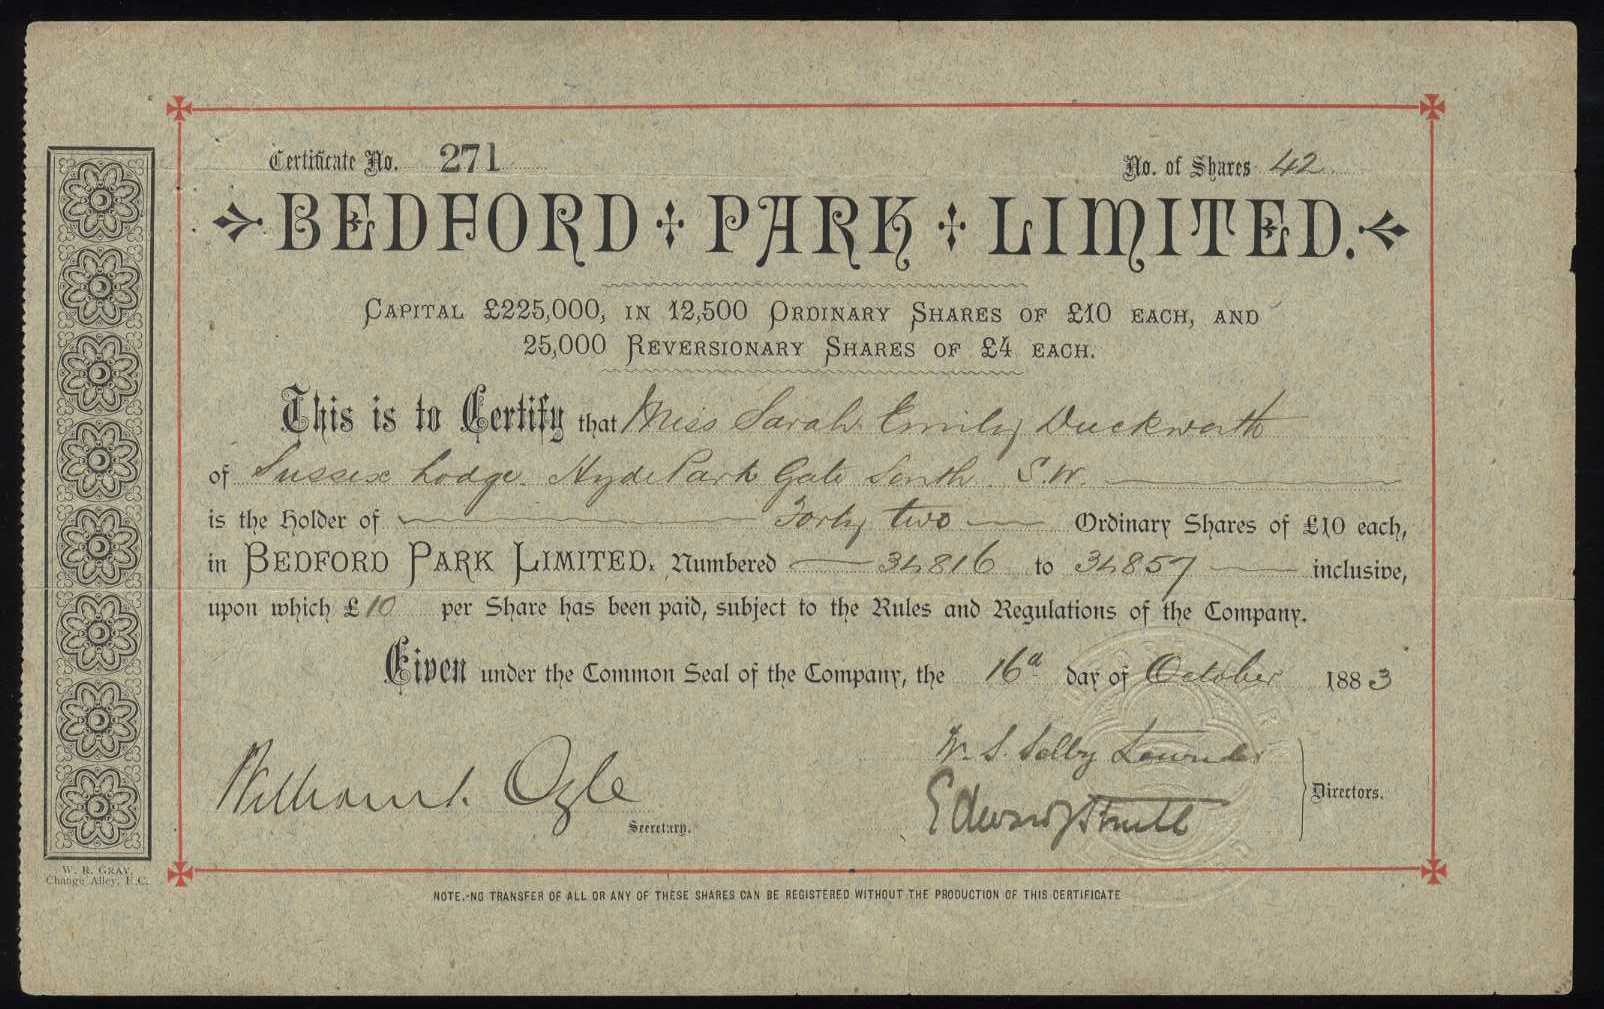 Certificate No. 271
No. of Shares 42
BEDFORD PARK LIMITED.
CAPITAL £225,000, IN 12,500 ORDINARY SHARES OF £10 EACH, AND
25,000 REVERSIONARY SHARES OF £4 EACH.
This is to Certify that Miss Sarah Emily Duckworth
of Sussex Lodge. Hyde Park Gate South. S.W.
is the Holder of Forty two Ordinary Shares of £10 each,
in BEDFORD PARK LIMITED. Numbered 34816 to 34857 inclusive,
upon which £10 per Share has been paid, subject to the Rules and Regulations of the Company.
Given under the Common Seal of the Company, the 16th day of October 1883
W. S. Selby Lowndes
William Ogle
Secretary.
Edward
Directors.
W. R. GRAY,
Change Alley, E.C.
NOTE.-NO TRANSFER OF ALL OR ANY OF THESE SHARES CAN BE REGISTERED WITHOUT THE PRODUCTION OF THIS CERTIFICATE